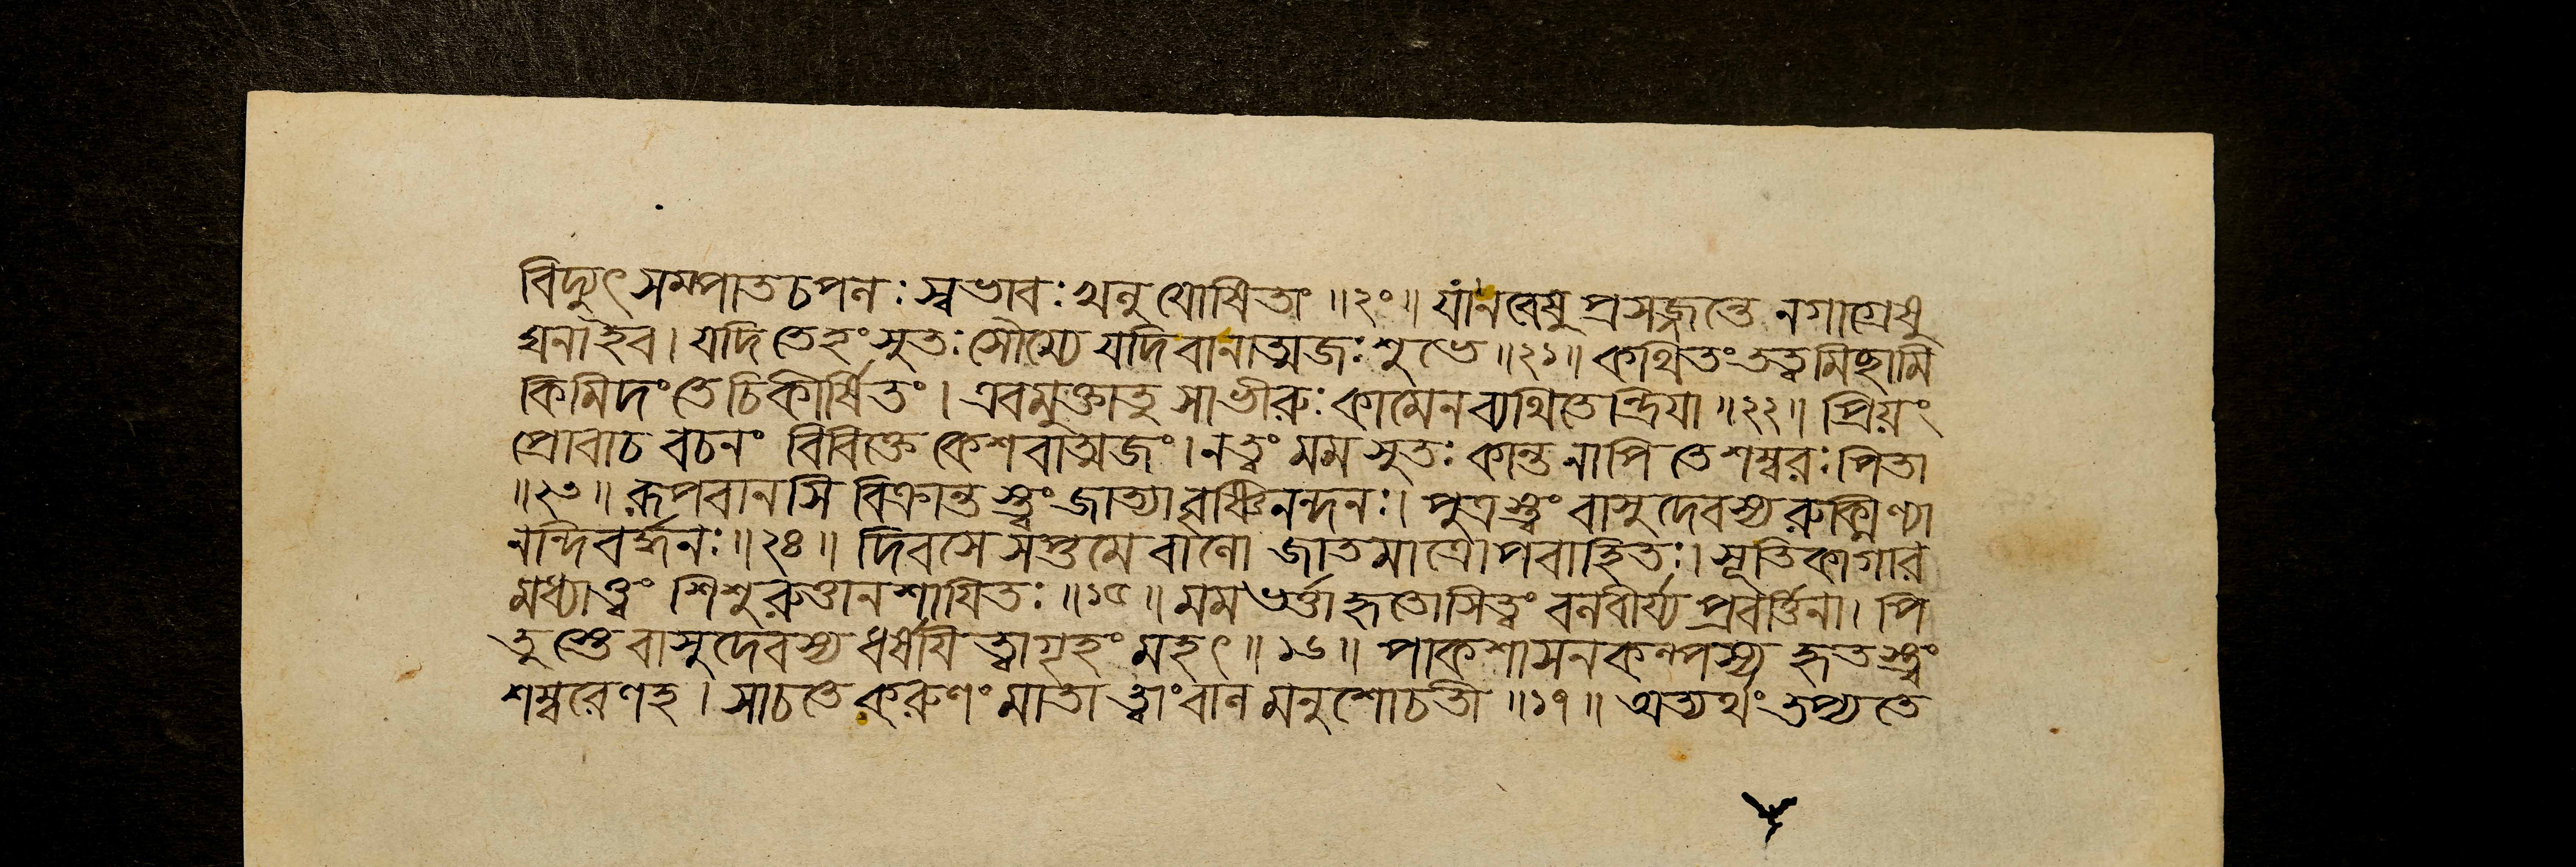 বিদ্যুৎসম্পাতচপলঃ স্বভাবঃ খলু যোষিতাং ॥২০॥ যা নরেষু প্রসজ্জন্তে নগাগ্রেষু
ঘনা ইব। যদি তেহং সুতঃ সৌম্যে যদি বা নাত্মজঃ শুভে ॥২১॥ কথিতং তত্ত্বমিছামি
কিমিদং তে চিকীর্ষিতং। এবমুক্তা তু সা ভীরুঃ কামেন ব্যথিতেন্দ্রিয়া ॥২২॥ প্রিয়ং
প্রোবাচ বচনং বিবিক্তে কেশবাত্মজং। ন ত্বং মম সুতঃ কান্ত নাপি তে শম্বরঃ পিতা
॥২৩॥ রূপবানসি বিক্রান্তস্ত্বং জাত্যা বৃষ্ণিনন্দনঃ। পুত্রস্ত্বং বাসুদেবস্য রুক্মিণ্যা
নন্দিবর্দ্ধনঃ ॥২৪॥ দিবসে সপ্তমে বালো জাতমাত্রোপবাহিতঃ। সূতিকাগার
মধ্যাত্ত্বং শিশুরুত্তানশায়িতঃ ॥২৫॥ মম ভর্ত্তা হৃতোসি ত্বং বলবীর্য্য প্রবর্ত্তিনা। পি
তুস্তে বাসুদেবস্য ধর্ষয়িত্বা গৃহং মহৎ ॥২৬॥ পাকশাসনকল্পস্য হৃতস্ত্বং
শম্বরেণ হ। সা চ তে করুণং মাতা ত্বাং বালমনুশোচতী ॥২৭॥ অত্যর্থং তপ্যতে